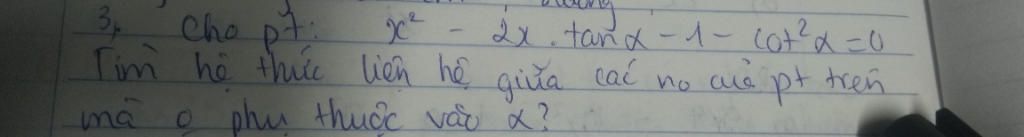 3, Cho pt: x² - 2x.tanα - 1 - cot²α = 0
Tìm hệ thức liên hệ giữa các no của pt trên
mà o phụ thuộc vào α?